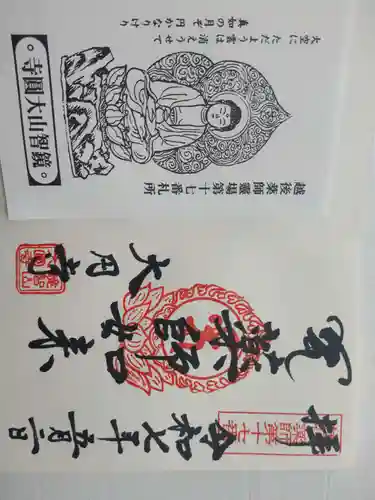 越後薬師霊場第十七番札所
大空に
ただよう雲は
消えうせて
真如の月ぞ
円かなりけり
鏡智山大圓寺
拝
令和七年五月二日
薬師第十七番
薬師如来
大円寺